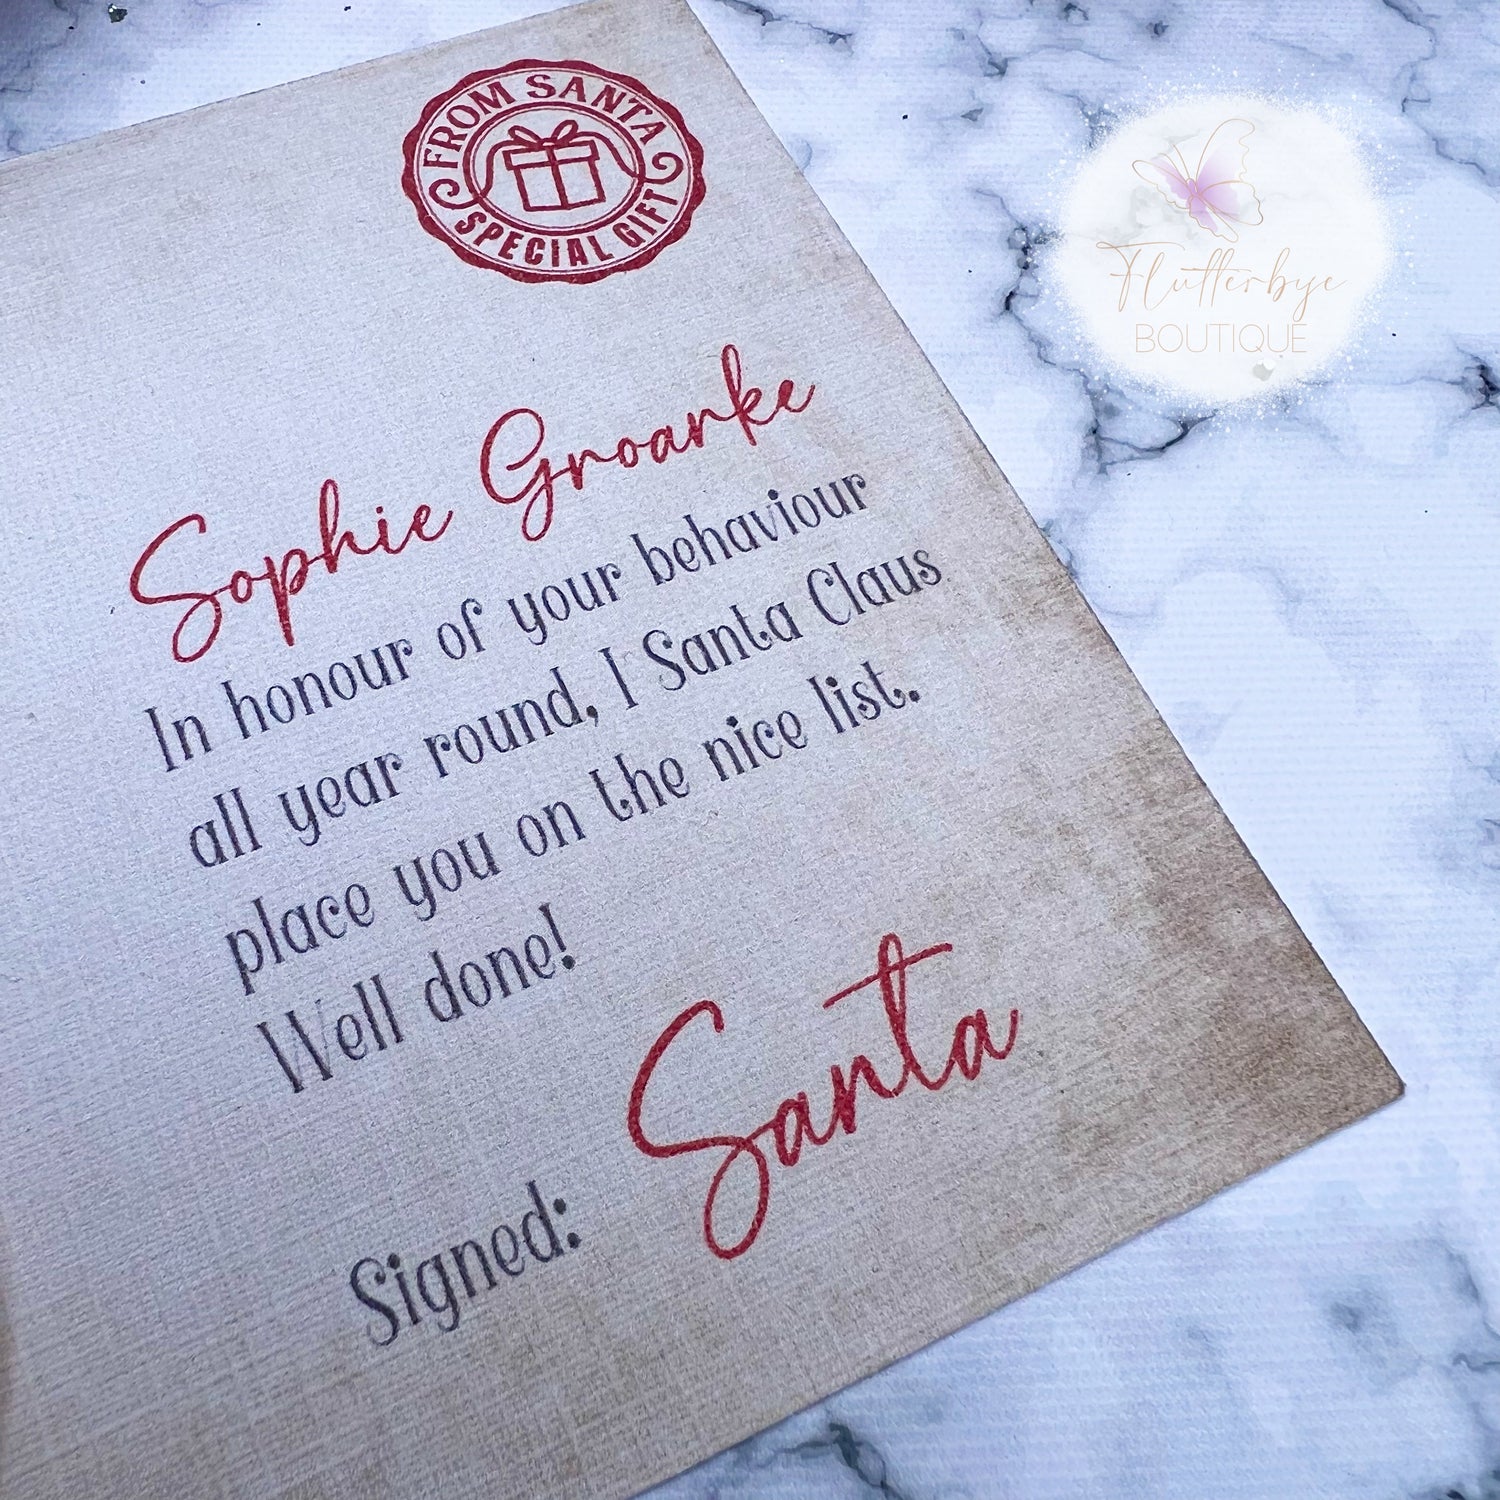 FROM SANTA
SPECIAL GIFT
Flutterbye
BOUTIQUE
Sophie Groarke
In honour of your behaviour
all year round, I Santa Claus
place you on the nice list.
Well done!
Signed: Santa